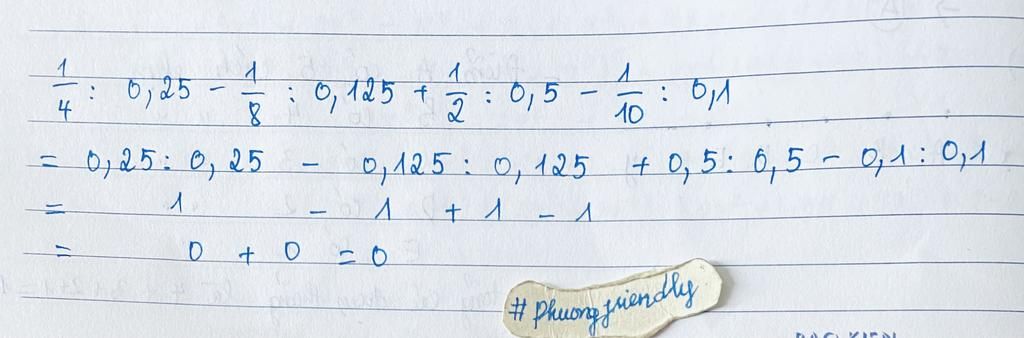 1/4 : 0,25 - 1/8 : 0,125 + 1/2 : 0,5 - 1/10 : 0,1
= 0,25 : 0,25 - 0,125 : 0,125 + 0,5 : 0,5 - 0,1 : 0,1
= 1 - 1 + 1 - 1
= 0 + 0 = 0
# Phuongfriendly